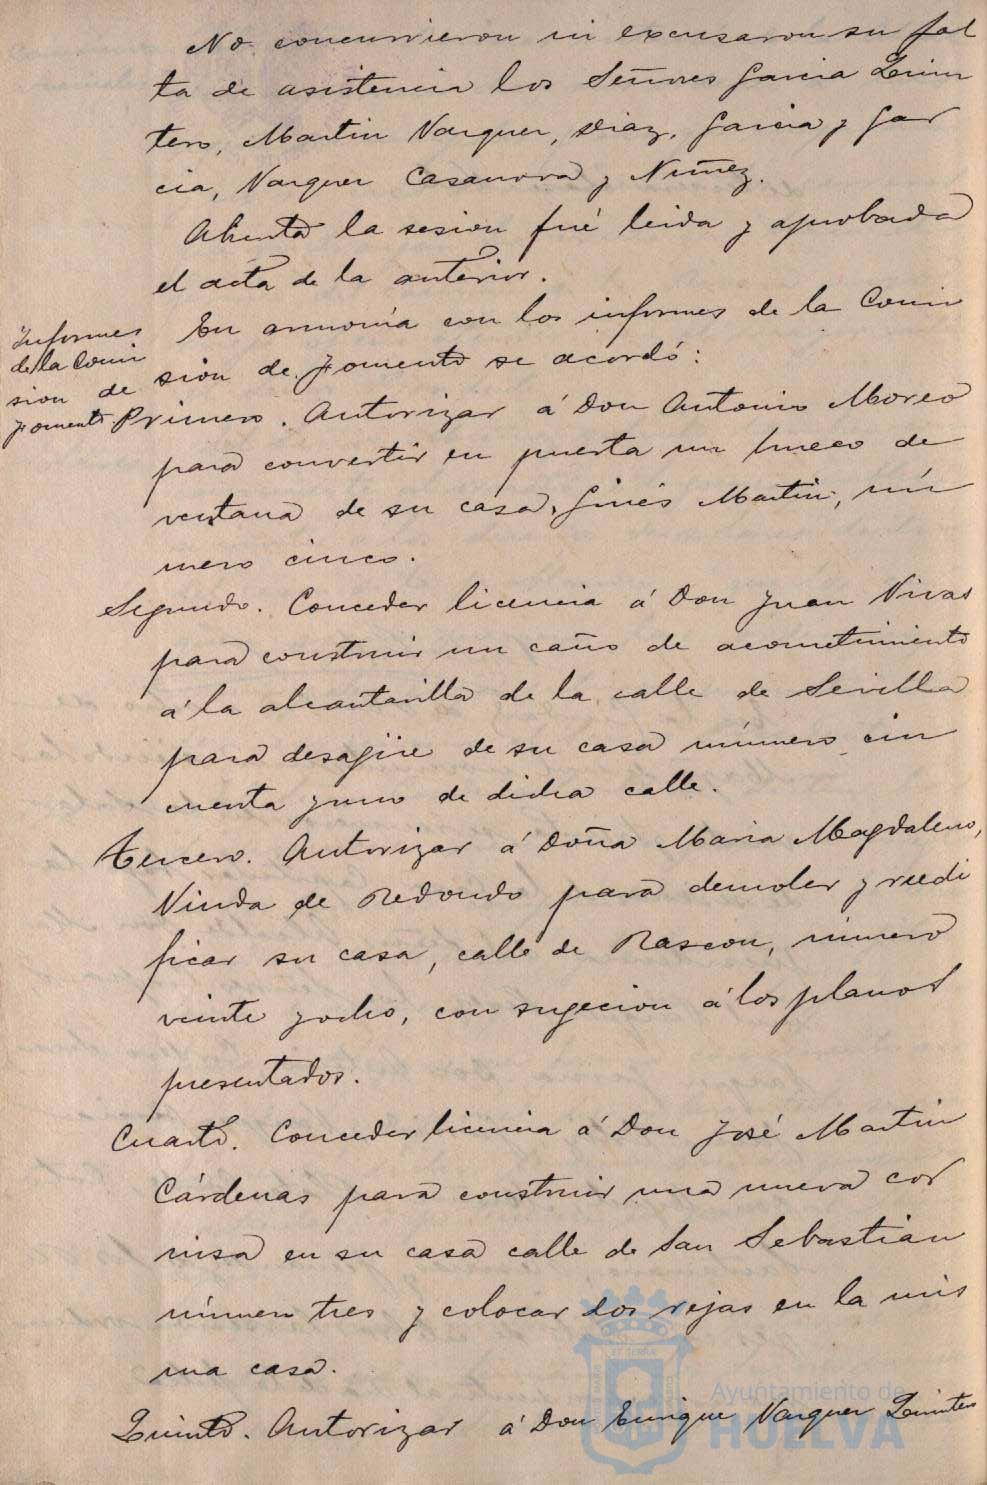 No concurrieron ni excusaron su fal
ta de asistencia los Señores Garcia Quin
tero, Martin Vazquez, Diaz, Garcia y Gar
cia, Vazquez Casanova y Nuñez.
Abierta la sesion fué leida y aprobada
el acta de la anterior.
Informes
de la Comi
sion de
Fomento
En armonia con los informes de la Comi
sion de Fomento se acordó:
Primero. Autorizar á Don Antonio Moreo
para convertir en puerta un hueco de
ventana de su casa, Ginés Martin, nú
mero cinco.
Segundo. Conceder licencia á Don Juan Vivas
para construir un caño de acometimiento
á la alcantarilla de la calle de Sevilla
para desagüe de su casa número cin
cuenta y uno de dicha calle.
Tercero. Autorizar á Doña Maria Magdaleno,
Viuda de Redondo para demoler y reedi
ficar su casa, calle de Rascon, número
veinte y ocho, con sugecion á los planos
presentados.
Cuarto. Conceder licencia á Don José Martin
Cárdenas para construir una nueva cor
nisa en su casa calle de San Sebastian
número tres y colocar dos rejas en la mis
ma casa.
Quinto. Autorizar á Don Enrique Vazquez Quintero
Ayuntamiento de
HUELVA